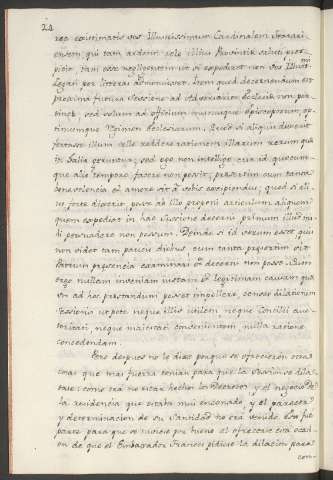 24
rea existimatio est Illustrissimum Cardinalem Ferrari-
ensem qui tam ardenti zelo illius Provintiæ saluti pros-
picit tam esse negligentem ut si expediret non vos Illust.mi
Legati per literas admonuisset. Item quod decernendum est
proxima futura Sessione ad Adversarios Ecclesiæ non per-
tinet, sed solum ad officium cuiuscumque Episcoporum, op-
timumque regimen ecclesiarum. Quod si aliqui dicerent
fortasse illum velle reddere rationem illarum rerum quæ
in Gallia geruntur; sed ego non intelligo cur id quocum-
que alio tempore facere non possit, præsertim cum tanta
benevolentia et amore sit à vobis excipiendus; quod si ali-
us forte diceret, posse ab illo proponi articulum aliquem
quem expediat in hac Sessione decerni, primum illud mi-
hi persuadere non possum. Deinde si id verum esset quis
non videt tam paucis diebus cum tanta præsertim sit
Patrum præsentia examinari et decerni non posse. Cum
ergo nullam inveniam iustam et legitimam causam quæ
vos ad hoc præstandum posset impellere, censeo dilationem
Sessionis utpote neque illis utilem neque Concilii auc-
toritati neque maiestati convenientem nulla ratione
concedendam.
Pero despues no le dixo porque se ofrecieron otras
cosas que mas fuerza tenian para que la Session se dila-
tase: como era no estar hechos los Decretos, y el negocio de
la residencia que estaba mui enconado, y el parecer
y determinacion de su Santidad no era venido. Esa fue
parte para que se viniese por bueno el ofrecerse esta ocasi-
on de que el Embaxador Frances pidiese la dilacion para
con-